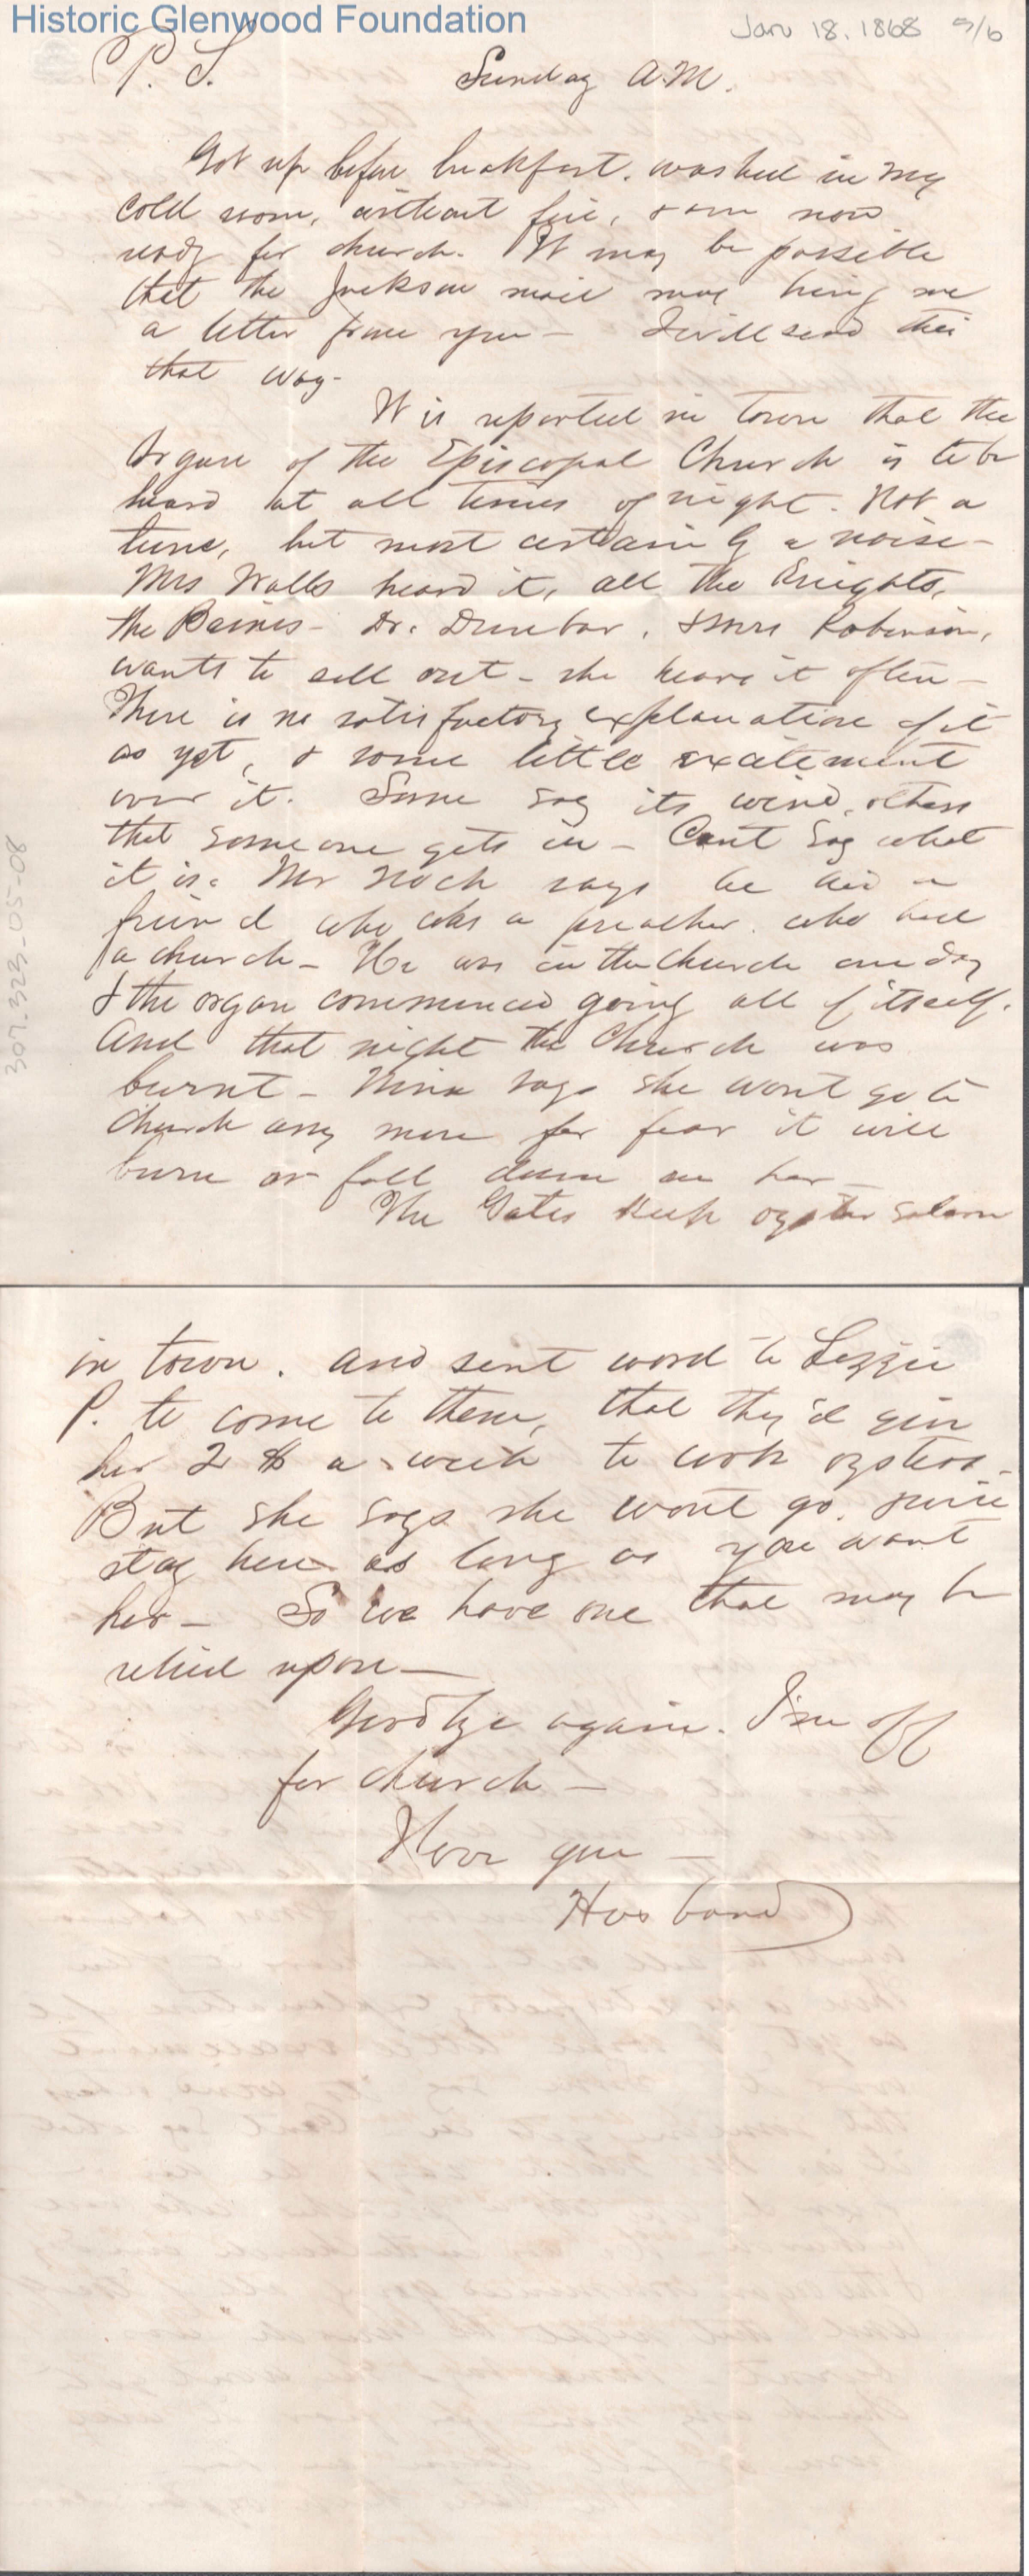 Historic Glenwood Foundation
Jan 18. 1868 5/6
P. S. Sunday A.M.
Got up before breakfast. washed in my
cold room, without fire, & am now
ready for church. It may be possible
that the Jackson mail may bring me
a letter from you — I will send this
that way.
It is reported in town that the
Organ of the Episcopal Church is to be
heard at all times of night. Not a
tune, but most certainly a noise —
Mrs Walls heard it, all the Knights,
the Baines — Dr. Dunbar, & Mrs Robinson,
wants to sell out — she hears it often —
There is no satisfactory explanation of it
as yet, & some little excitement
over it. Some say its wind, others
that some one gets in — Cant say what
it is. Mr Noch says he had a
friend who was a preacher. who had
a church — He was in the Church one day
& the organ commenced going all of itself.
And that night the Church was
burnt — Nina says she wont go to
church any more for fear it will
burn or fall down on her —
The Gates keep oyster saloon
in town. and sent word to Lizzie
P. to come to them, that they'd give
her 2 $ a week to cook oysters —
But she says she wont go.
stay here as long as you want
her — So we have one that may be
relied upon —
Goodbye again. I'm off
for church —
I love you —
Husband
307.323-05-08